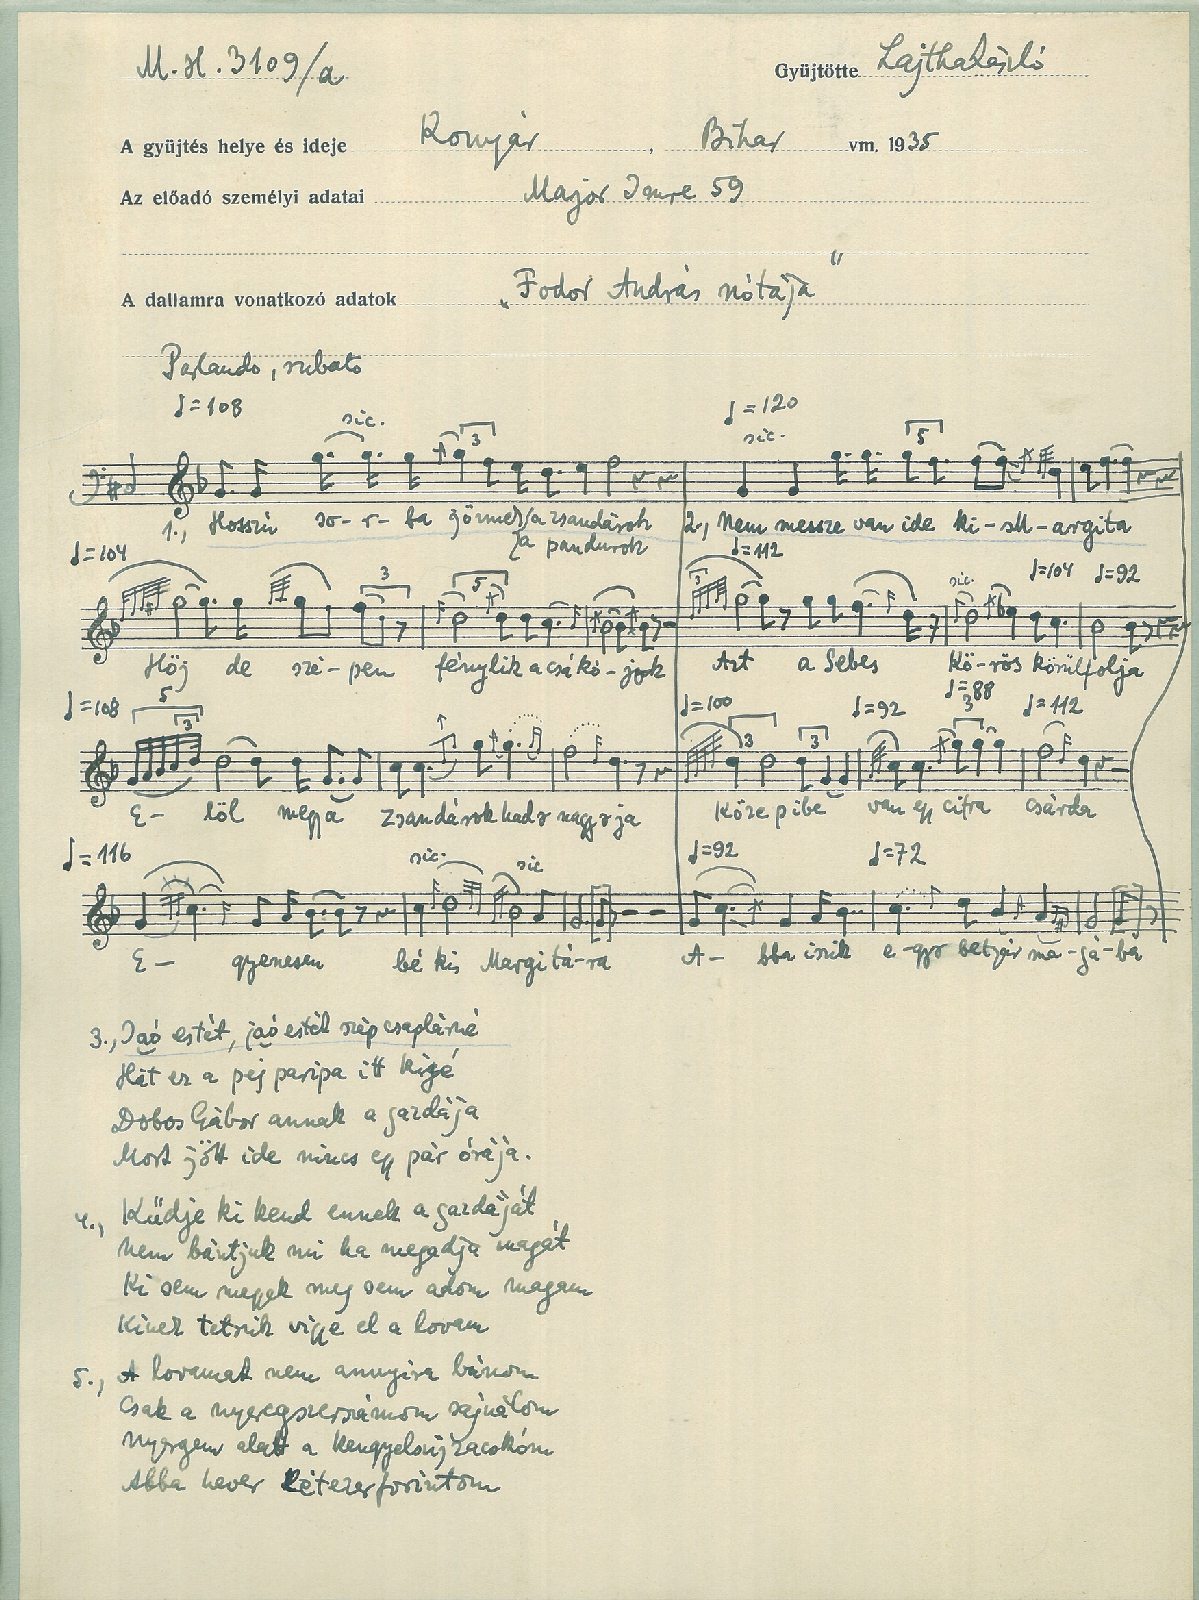 M.H. 3109/a
Gyüjtötte Lajtha László
A gyüjtés helye és ideje Konyár, Bihar vm. 1935
Az előadó személyi adatai Major Imre 59
A dallamra vonatkozó adatok „Fodor András nótája"
Parlando, rubato
♩=108 sic. ♩=120 sic.
3 5
1., Hosszú so-r-ba görmek a zsandárok 2., Nem messze van ide ki-sM-argita
a pandurok
♩=104 ♩=112
3 5 3 sic. ♩=104 ♩=92
Hög de szé-pen fénylik a csákó-jok Azt a Sebes Kö-rös körülfolja
♩=108 5 3 ♩=100 3 3 ♩=92 ♩=88 3 ♩=112
E- löl megy a zsandárok hadr nagyja Köze pibe van egy cifra csárda
♩=116 sic. sic ♩=92 ♩=72
E- gyenesen bé kis Margitá-ra A- bba iszik e-gyr betyár ma-gá-ba
3., Jaó estét, jaó estét szép csaplárné
Hát ez a pej paripa itt kigé
Dobos Gábor annak a gazdája
Most jött ide nincs egy pár órája.
4., Küdje ki kend ennek a gazdáját
Nem bántjuk mi ha megadja magát
Ki sem megyek meg sem adom magam
Kinek tetszik vigye el a lovam
5., A lovamat nem annyira bánom
Csak a nyeregszerszámom sajnálom
Nyergem alatt a
Abba hever kétezer forintom